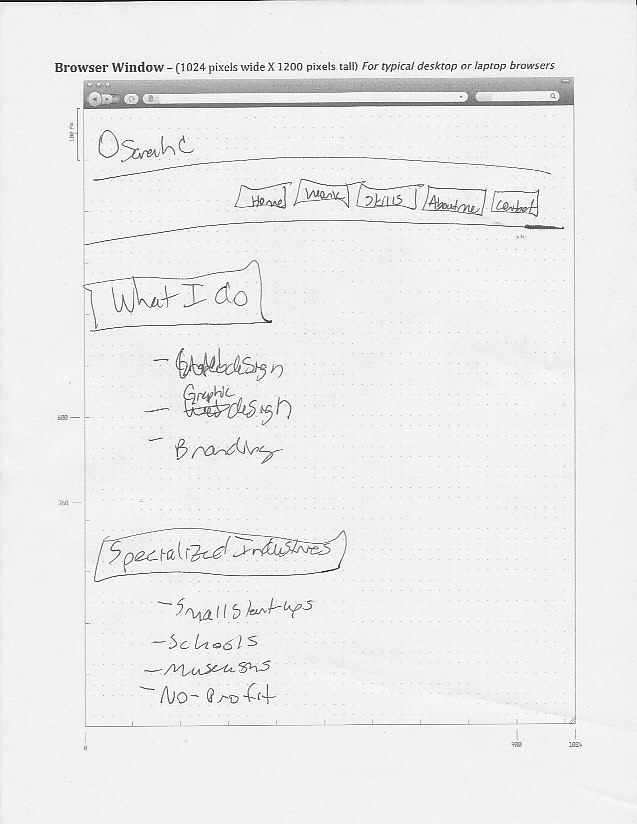 Browser Window – (1024 pixels wide X 1200 pixels tall) For typical desktop or laptop browsers
100 PX
Sarah C
Home Work Skills About me Contact
What I do
- design
- Graphic design
- Branding
600
768
Specialized Industries
- Small Start-ups
- Schools
- Museusms
- No-Profit
0 900 1024